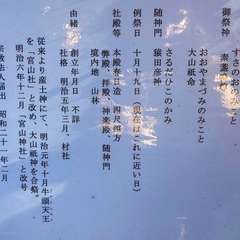 御祭神
すさのおのみこと
素盞
おおやまづみのみこと
大山祇命
さるだひこのかみ
随神門 猿田彦神
例祭日 十月十九日(現在はこれに近い日)
社殿等 本殿春日造 四尺四方
弊殿、拝殿、神楽殿、随神門
境内地 山林
由緒 創立年月日 不詳
社格 明治五年三月、村社
従来より産土神にて、明治元年十月牛頭天王
を「宮山社」と改め、大山祇神を合祭。
明治六年十二月「宮山神社」と改号
宗教法人届出 昭和二十一年二月